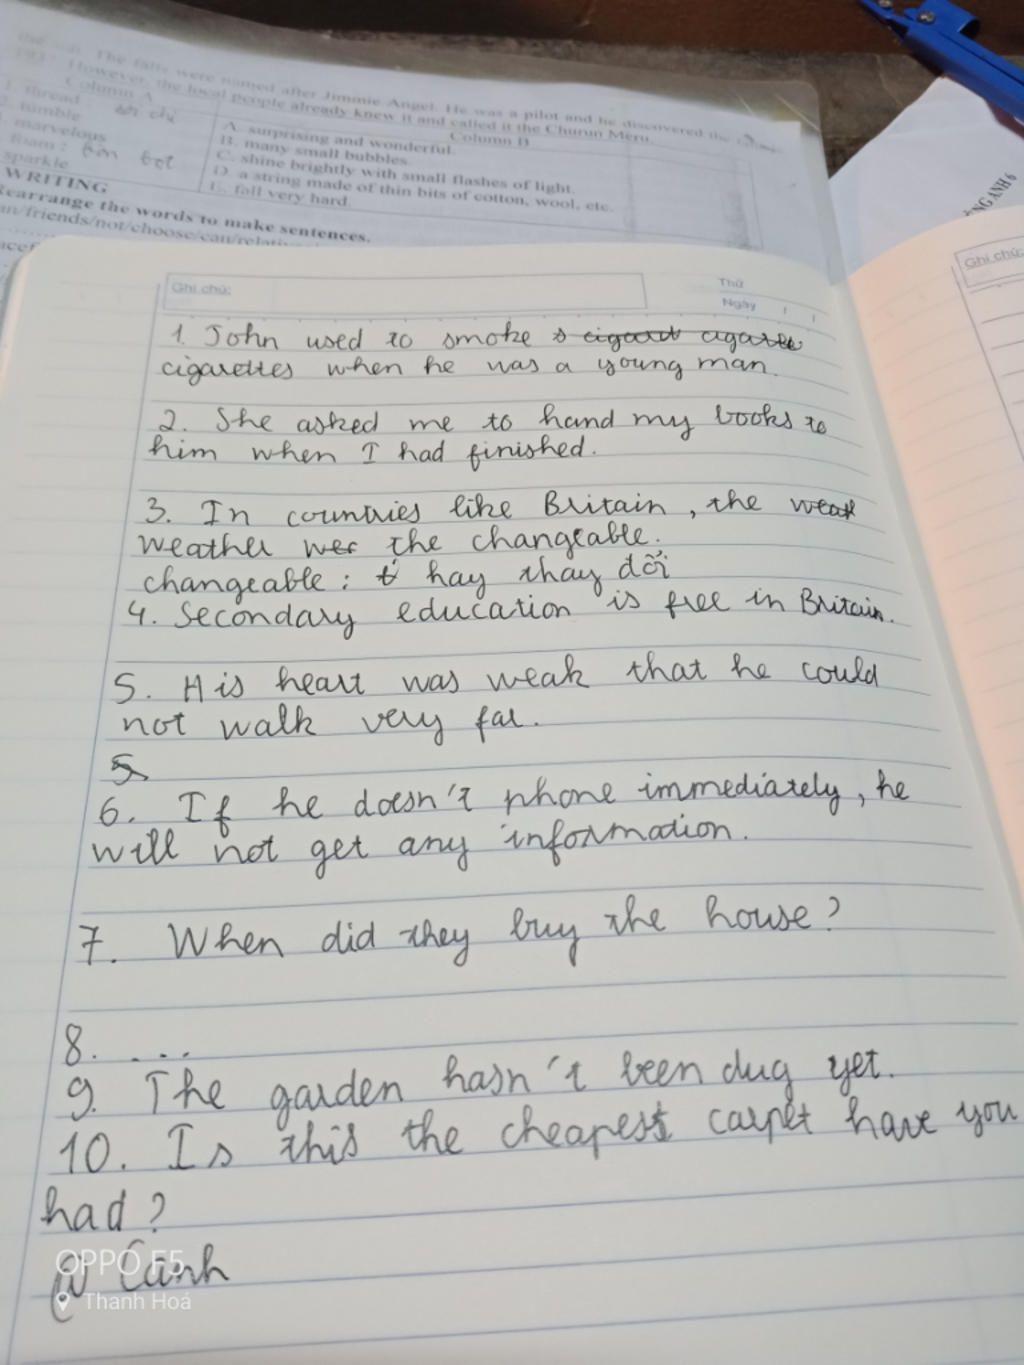 The falls were named after Jimmie Angel. He was a pilot and he discovered the
However, the local people already knew it and called it the Churun Meru.
Column A
Column B
thread
tumble
marvelous
foam:
sparkle
A. surprising and wonderful.
B. many small bubbles.
C. shine brightly with small flashes of light.
D. a string made of thin bits of cotton, wool, etc.
E. fall very hard.
WRITING
Rearrange the words to make sentences.
an/friends/not/choose/can/relati
NG ANH 6
Ghi chú:
Thứ
Ngày / /
Ghi chú:
1. John used to smoke s cigaret cigaree
cigarettes when he was a young man.
2. She asked me to hand my books to
him when I had finished.
3. In countries like Britain, the weat
weather wes the changeable.
changeable: t hay thay đổi
4. Secondary education is free in Britain.
5. His heart was weak that he could
not walk very far.
5
6. If he doesn't phone immediately, he
will not get any information.
7. When did they buy the house?
8. ...
9. The garden hasn't been dug yet.
10. Is this the cheapest carpet have you
had?
@ Canh
OPPO F5
Thanh Hoá